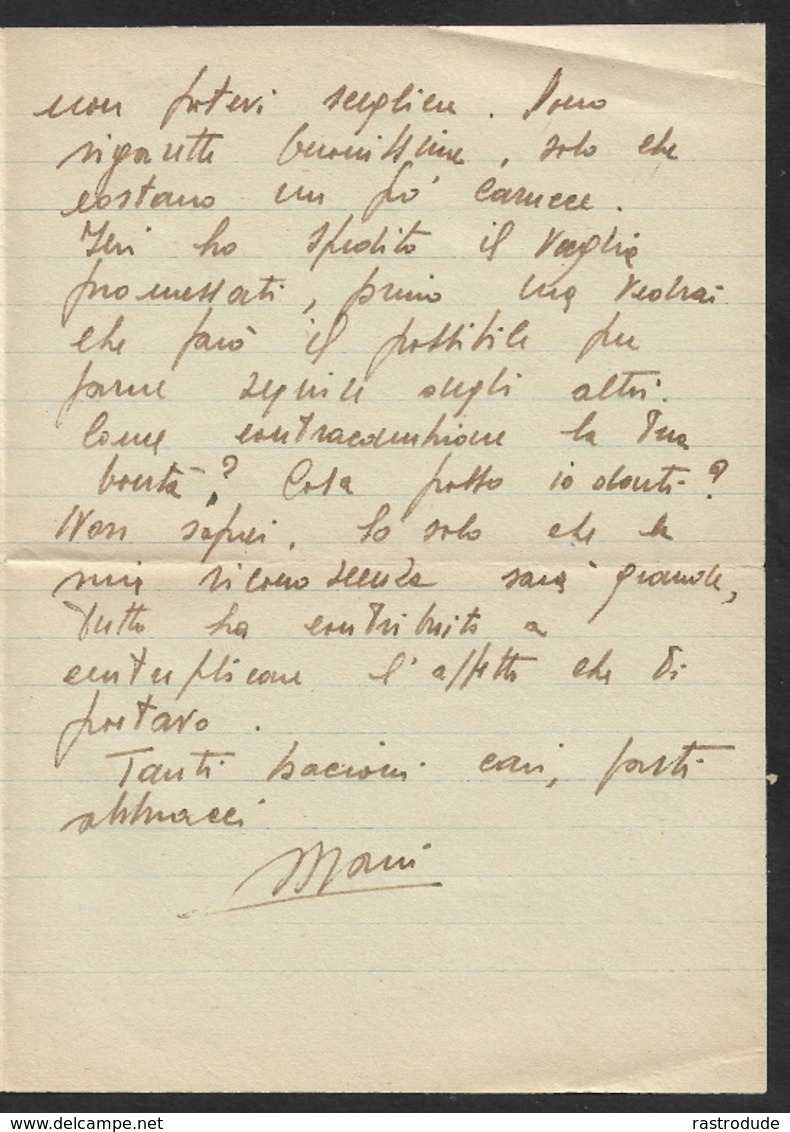 non potevi scegliere. Sono
sigarette buonissime, solo che
costano un pò carucce.
Ieri ho spedito il vaglia
promessoti, primo ma vedrai
che farò il possibile per
farne seguire degli altri.
Come contraccambiare la tua
bontà? Cosa posso io darti?
Non saprei. So solo che la
mia riconoscenza sarà grande,
tutto ha contribuito a
centuplicare l'affetto che ti
portavo.
Tanti bacioni cari, forti
abbracci
delcampe.net
rastrodude